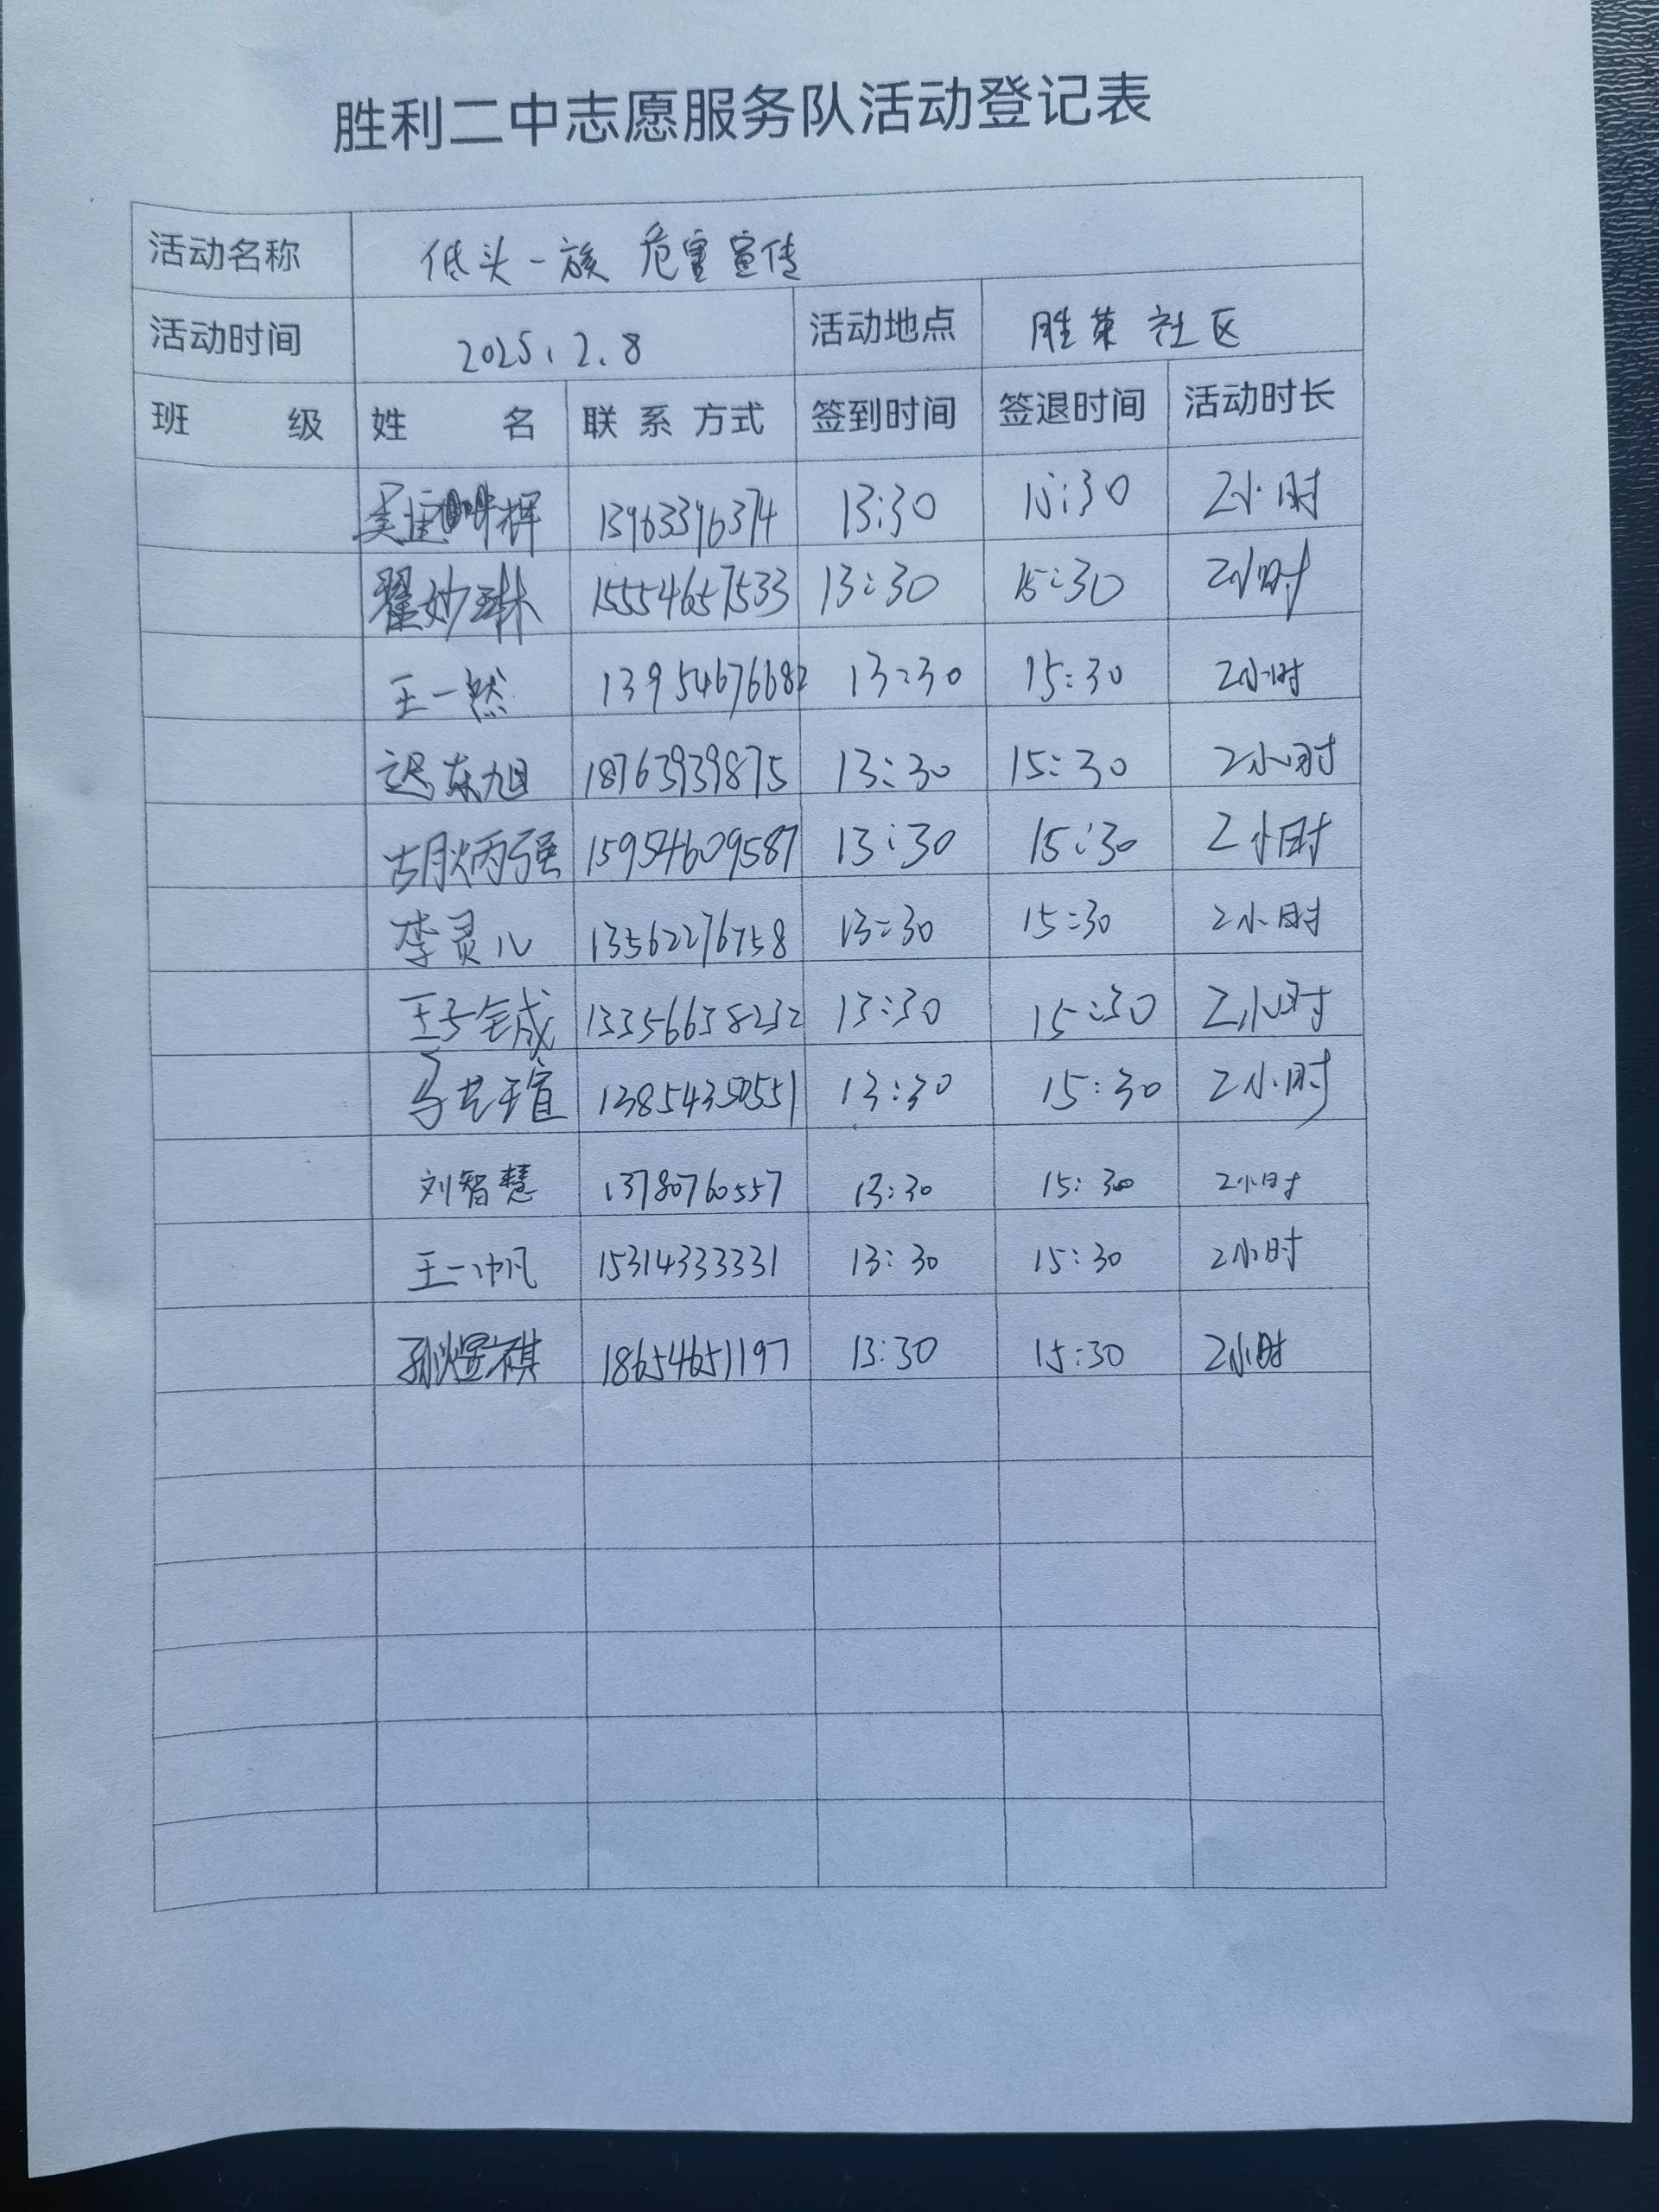 胜利二中志愿服务队活动登记表
活动名称 低头一族 危害宣传
活动时间 2025.2.8 活动地点 胜莱社区
班 级 姓 名 联系方式 签到时间 签退时间 活动时长
吴 辉 13963396374 13:30 15:30 2小时
翟妙琳 15554657533 13:30 15:30 2小时
王一然 13954676682 13:30 15:30 2小时
迟东旭 18763939875 13:30 15:30 2小时
胡炳强 15954609587 13:30 15:30 2小时
李灵儿 13562276758 13:30 15:30 2小时
王子铖 13356638232 13:30 15:30 2小时
马艺瑄 13854350551 13:30 15:30 2小时
刘智慧 13780760557 13:30 15:30 2小时
王一帆 15314333331 13:30 15:30 2小时
孙煜祺 18654651197 13:30 15:30 2小时